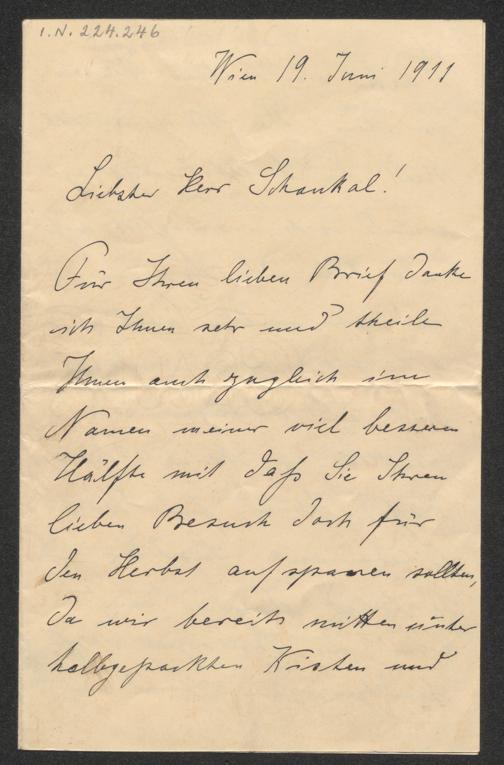 I.N. 224.246
Wien 19. Juni 1911
Liebster Herr Schaukal!
Für Ihren lieben Brief danke
ich Ihnen sehr und theile
Ihnen auch zugleich im
Namen meiner viel besseren
Hälfte mit daß Sie Ihren
lieben Besuch doch für
den Herbst aufsparen sollten,
da wir bereits mitten unter
halbgepackten Kisten und